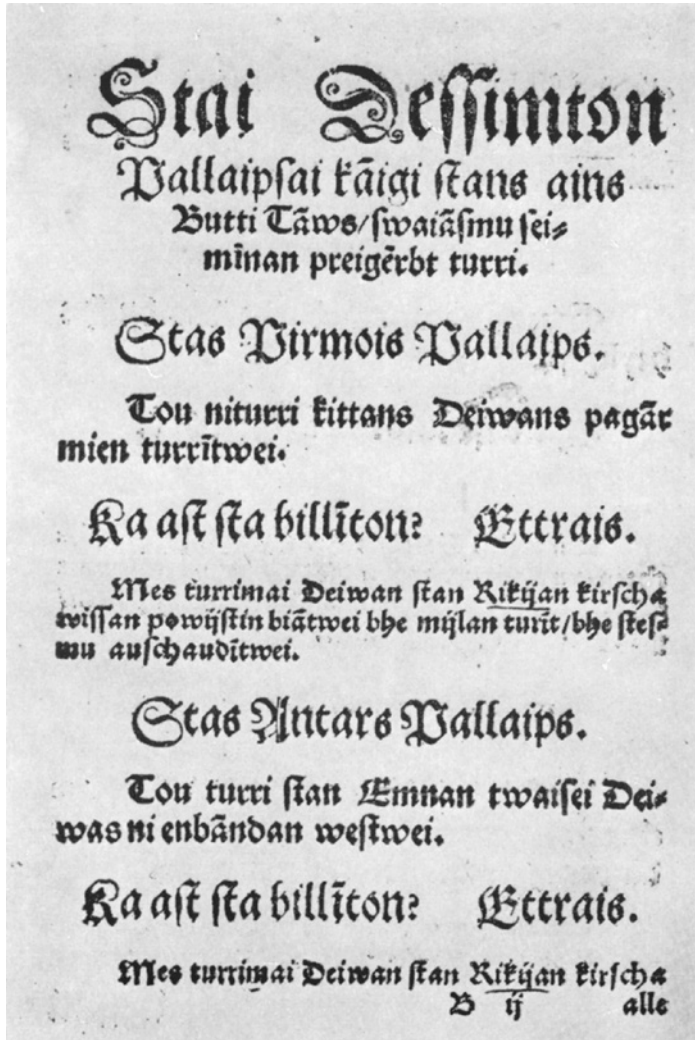 Stai Dessimton
Pallaipsai kāigi stans ains
Butti Tāws/swaiāsmu sei⸗
mīnan preigērbt turri.
Stas Pirmois Pallaips.
Tou niturri kittans Deiwans pagār
mien turrītwei.
Ka ast sta billīton? Ettrais.
Mes turrimai Deiwan stan Rikijan kirscha
wissan powijstin biātwei bhe mijlan turīt/bhe stes⸗
mu auschaudītwei.
Stas Antars Pallaips.
Tou turri stan Emnan twaisei Dei⸗
was ni enbāndan westwei.
Ka ast sta billīton? Ettrais.
Mes turrimai Deiwan stan Rikijan kirscha
B ij alle